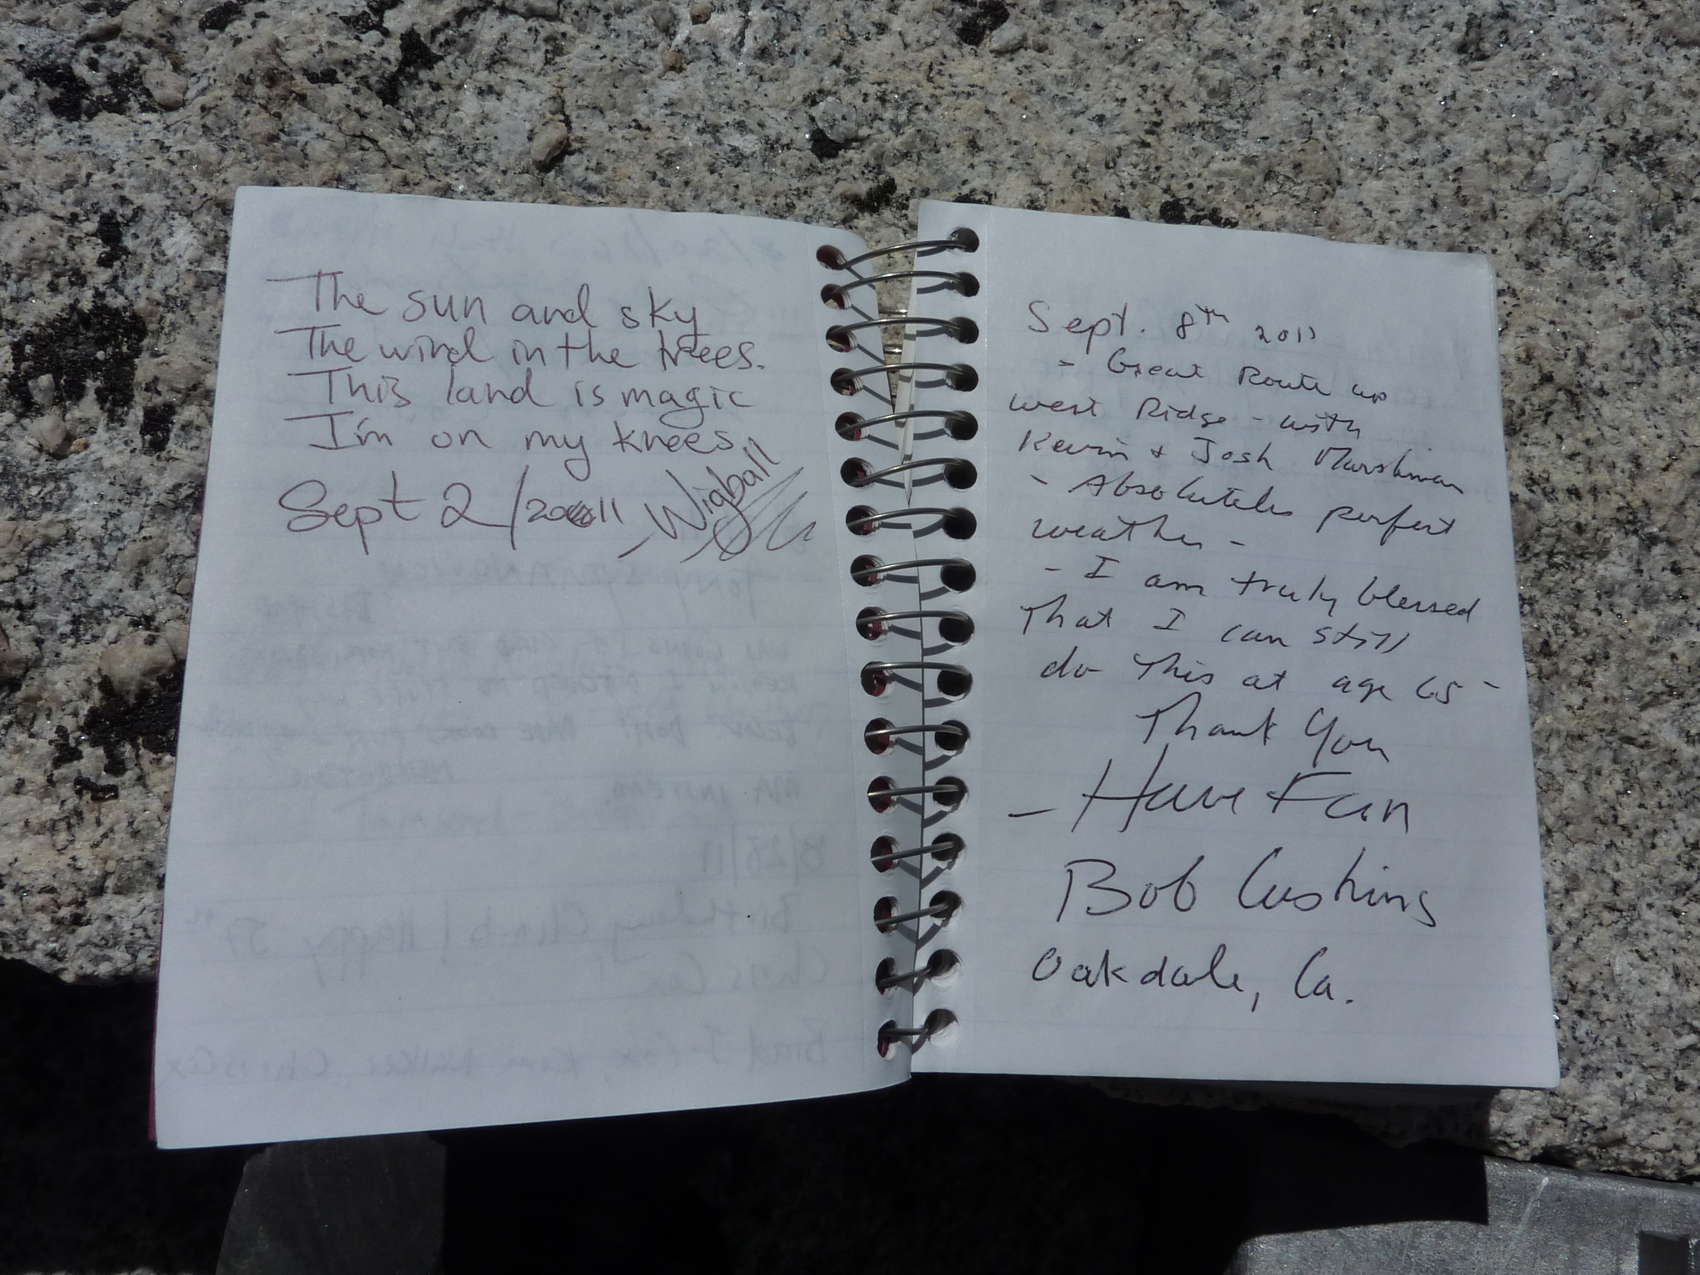 The sun and sky
The wind in the trees.
This land is magic
I'm on my knees
Sept 2/2011 Wigball
Sept. 8th 2011
- Great Route up
West Ridge - with
Kevin + Josh
- Absolutely perfect
weather -
- I am truly blessed
That I can still
do This at age 65 -
Thank You
- Have Fun
Bob Cushing
Oakdale, Ca.